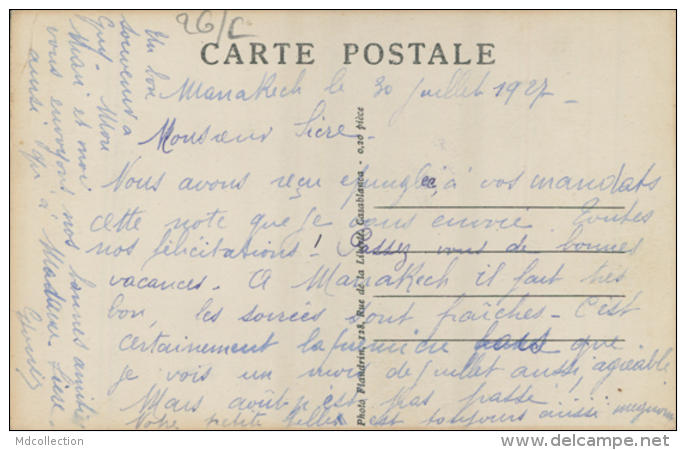 26/C
CARTE POSTALE
Marrakech le 30 juillet 1927-
Monsieur Sicre.
Nous avons reçu epinglée, à vos mandats
cette note que je vous envoie. Toutes
nos félicitations! Passez vous de bonnes
vacances. A Marrakech il fait très
bon, les soirées sont fraîches. C'est
certainement la première fois que
je vois un mois de juillet aussi agréable
Mais août n'est pas passé
Votre petite est toujours aussi mignonne
Un bon
souvenir a
Guy. Mon
Mari et moi
vous envoyons nos bonnes amitiés
ainsi qu' à Madame Sicre.
Photo Flandrin, 128, Rue de la Liberté, Casablanca. - 0,20 pièce
Mdcollection
www.delcampe.net